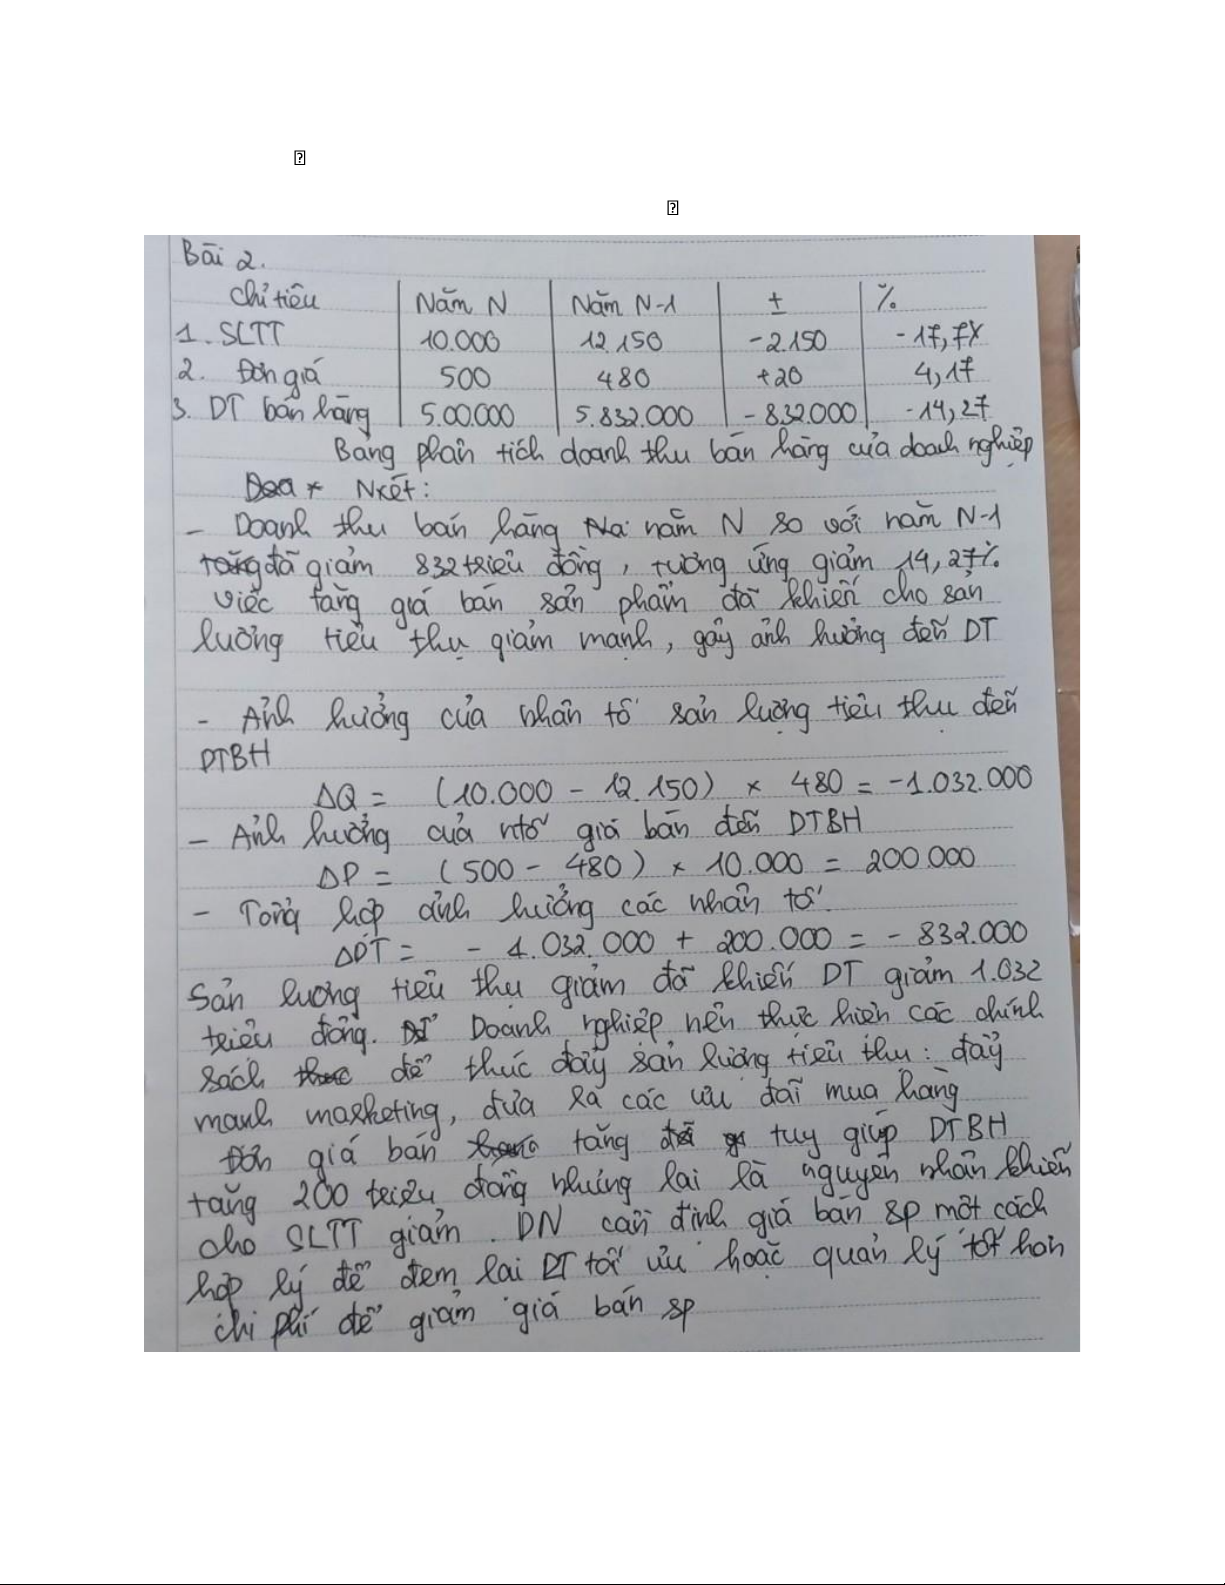 Bài 2.
Chỉ tiêu Năm N Năm N-1 ± %
1. SLTT 10.000 12.150 -2.150 -17,7%
2. Đơn giá 500 480 +20 4,17
3. DT bán hàng 5.00.000 5.832.000 -832.000 -14,27
Bảng phân tích doanh thu bán hàng của doanh nghiệp
* Nxét:
- Doanh thu bán hàng năm N so với năm N-1
đã giảm 832 triệu đồng, tương ứng giảm 14,27%
việc tăng giá bán sản phẩm đã khiến cho sản
lượng tiêu thụ giảm mạnh, gây ảnh hưởng đến DT
- Ảnh hưởng của nhân tố sản lượng tiêu thụ đến
DTBH
ΔQ = (10.000 - 12.150) × 480 = -1.032.000
- Ảnh hưởng của ntố giá bán đến DTBH
ΔP = (500 - 480) × 10.000 = 200.000
- Tổng hợp ảnh hưởng các nhân tố.
ΔDT = - 1.032.000 + 200.000 = - 832.000
Sản lượng tiêu thụ giảm đã khiến DT giảm 1.032
triệu đồng. Doanh nghiệp nên thực hiện các chính
sách để thúc đẩy sản lượng tiêu thụ: đẩy
mạnh marketing, đưa ra các ưu đãi mua hàng
Đơn giá bán tăng tuy giúp DTBH
tăng 200 triệu đồng nhưng lại là nguyên nhân khiến
cho SLTT giảm. DN cần định giá bán sp một cách
hợp lý để đem lại DT tối ưu hoặc quản lý tốt hơn
chi phí để giảm giá bán sp